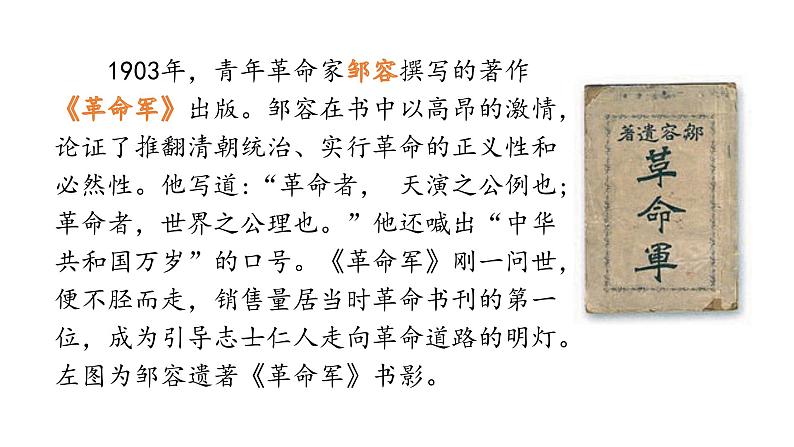 1903年，青年革命家邹容撰写的著作
《革命军》出版。邹容在书中以高昂的激情，
论证了推翻清朝统治、实行革命的正义性和
必然性。他写道：“革命者， 天演之公例也；
革命者，世界之公理也。”他还喊出“中华
共和国万岁”的口号。《革命军》刚一问世，
便不胫而走，销售量居当时革命书刊的第一
位，成为引导志士仁人走向革命道路的明灯。
左图为邹容遗著《革命军》书影。
著遺容鄒
革命軍